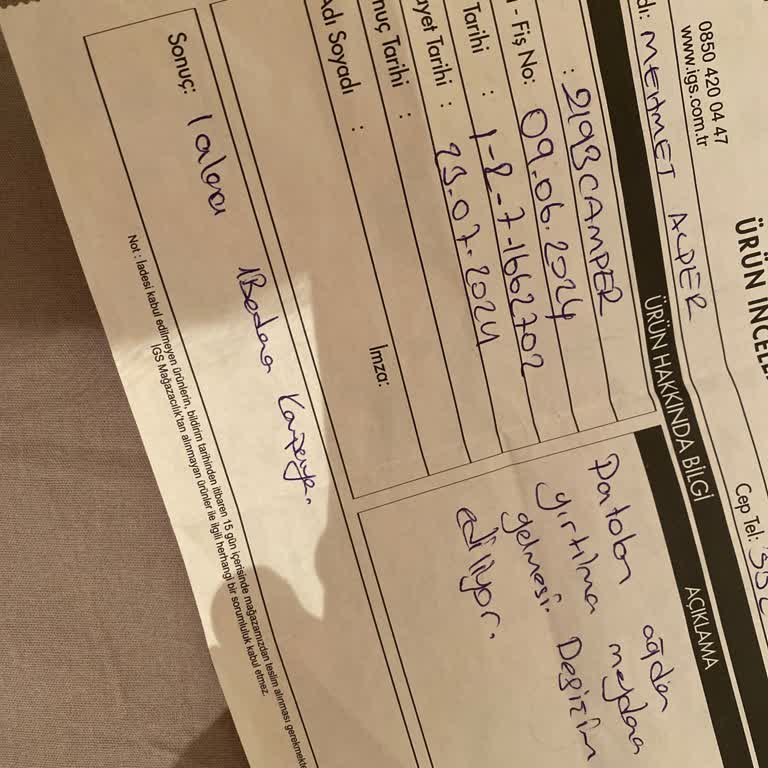 0850 420 04 47
www.igs.com.tr
ÜRÜN İNCELE
dı: MEHMET ALPER
Cep Tel: 55
ÜRÜN HAKKINDA BİLGİ
: 2193CAMPER
- Fiş No: 09.06.2024
Tarihi : 1-2-7-1662702
ayet Tarihi : 23.07.2024
nuç Tarihi :
Adı Soyadı :
İmza:
AÇIKLAMA
ağdan
yırtılma meydana
gelmesi. Değişim
ediliyor.
Sonuç:
Not : İadesi kabul edilmeyen ürünlerin, bildirim tarihinden itibaren 15 gün içerisinde mağazamızdan teslim alınması gerekmekte
İGS Mağazacılık'tan alınmayan ürünler ile ilgili herhangi bir sorumluluk kabul etmez.